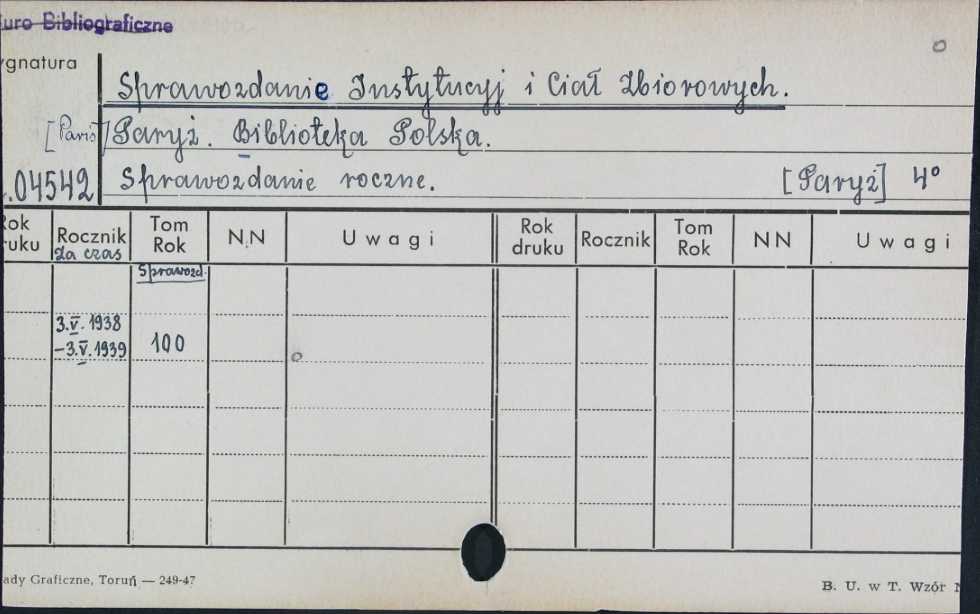 uro Bibliograficzne
ygnatura
Sprawozdanie Instytucyj i Ciał Zbiorowych.
[Paris] Paryż. Biblioteka Polska.
.04542 Sprawozdanie roczne. [Paryż] 4°
Rok druku Rocznik za czas Tom Rok NN Uwagi Rok druku Rocznik Tom Rok NN Uwagi
Sprawozd.
3.V.1938
-3.V.1939 100
ady Graficzne, Toruń — 249-47 B. U. w T. Wzór